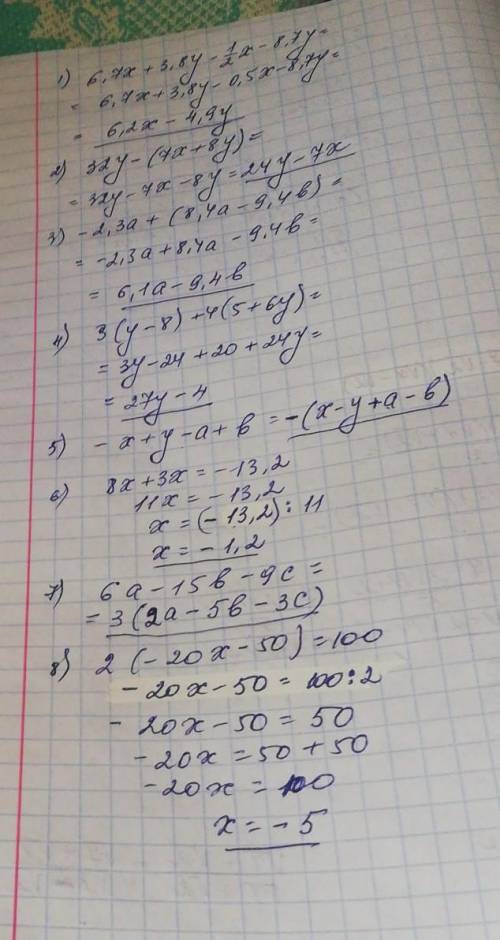 1) 6,7x + 3,8y - 1/2x - 8,7y =
= 6,7x + 3,8y - 0,5x - 8,7y =
= 6,2x - 4,9y
2) 32y - (7x + 8y) =
= 32y - 7x - 8y = 24y - 7x
3) -2,3a + (8,4a - 9,4b) =
= -2,3a + 8,4a - 9,4b =
= 6,1a - 9,4b
4) 3(y - 8) + 4(5 + 6y) =
= 3y - 24 + 20 + 24y =
= 27y - 4
5) - x + y - a + b = -(x - y + a - b)
6) 8x + 3x = -13,2
11x = -13,2
x = (-13,2) : 11
x = -1,2
7) 6a - 15b - 9c =
= 3(2a - 5b - 3c)
8) 2(-20x - 50) = 100
-20x - 50 = 100 : 2
-20x - 50 = 50
-20x = 50 + 50
-20x = 100
x = -5